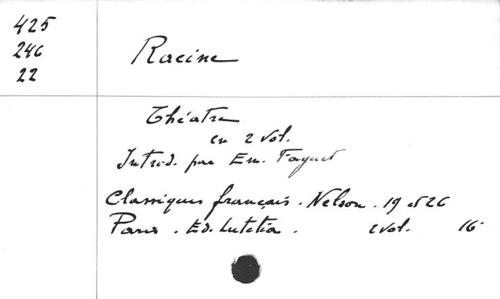 425
246
22
Racine
Théatre
en 2 vol.
Introd. par Em. Faguet
Classiques français. Nelson. 19 et 26
Paris. Ed. Lutetia. 2 vol. 16